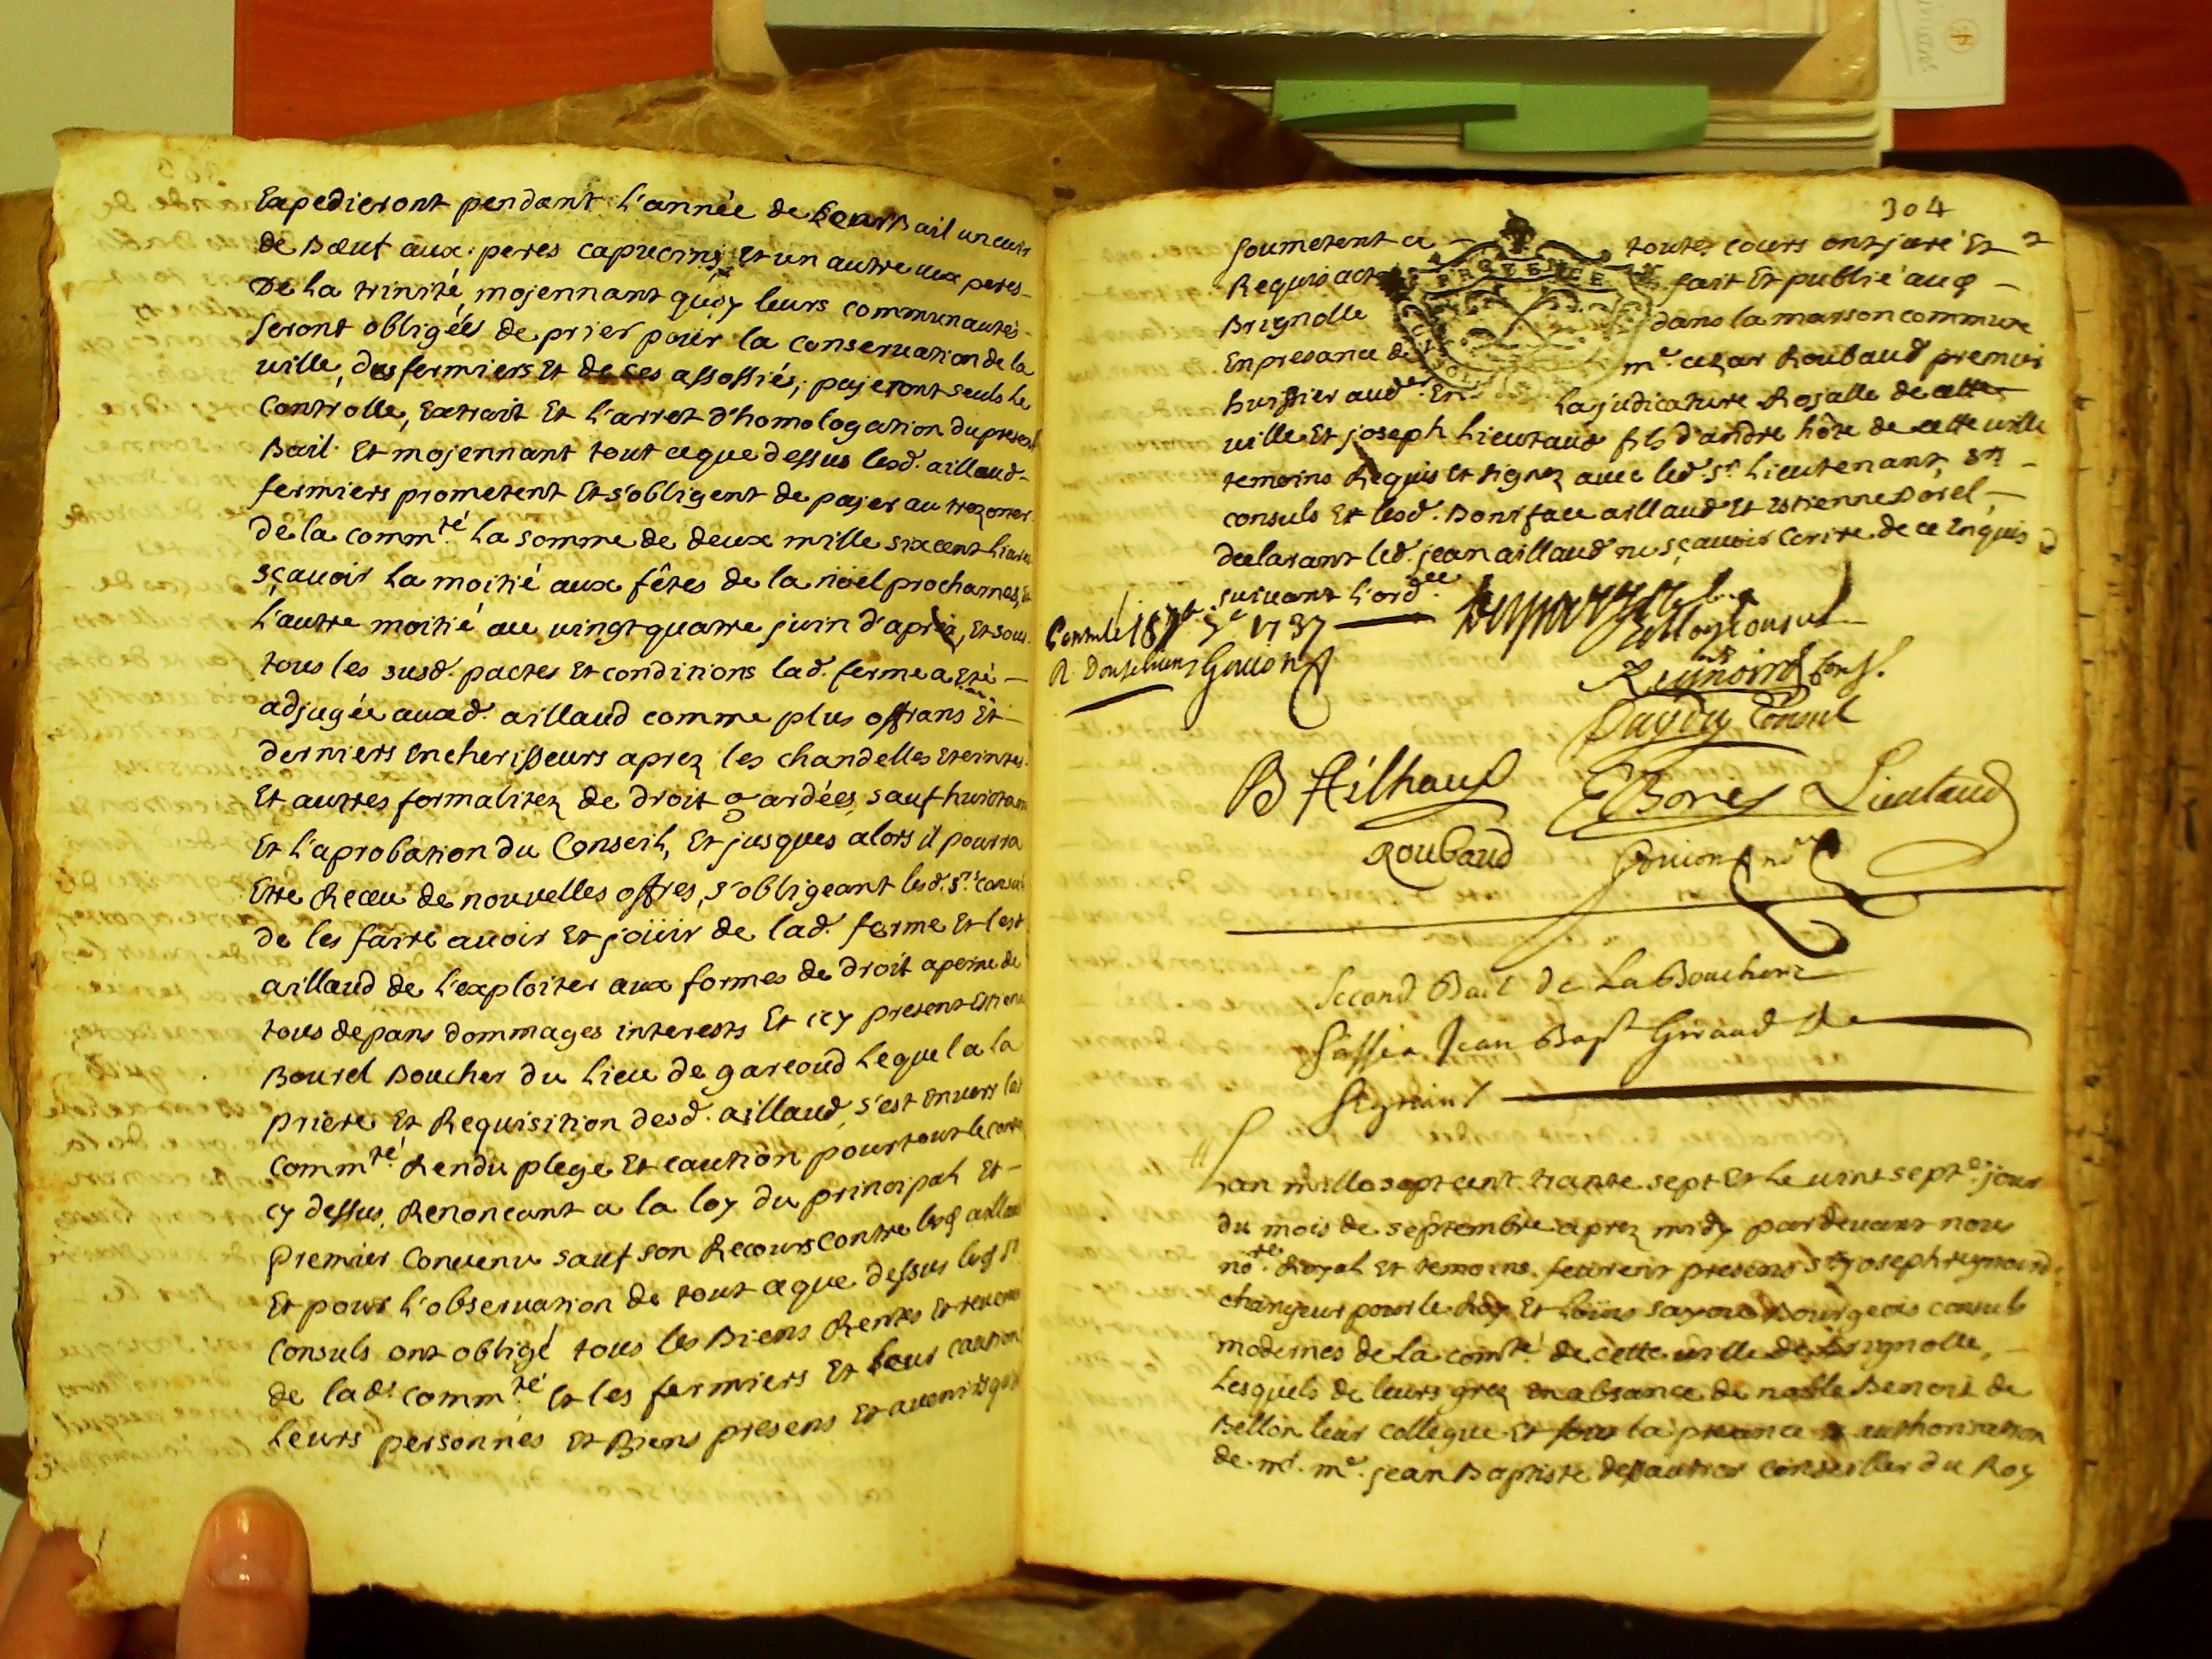 Expedieront pendant l'année de leur Bail un cuir
de Bœuf aux peres capucins et un autre aux peres
De la trinité, mojennant quoy leurs communautés
seront obligées de prier pour la conservation de la
ville, des fermiers Et de ses assossiés, pajeront seuls le
Controlle, Extrait Et l'arret d'homologation du present
Bail. Et mojennant tout ce que dessus lesd. aillaud
fermiers prometent Et s'obligent de pajer au trezorier
De la comm.té La somme de deux mille six cent livres
sçavoir La moitié aux fêtes de la noël prochaines, Et
L'autre moitié au vingt quatre juin d'après, Et sous
tous les susd. pactes Et conditions lad. ferme a Eté
adjugée auxd. aillaud comme plus offrans Et
derniers Encherisseurs aprez les chandelles Eteintes
Et autres formalitez de droit gardées, sauf huictaine
Et l'aprobation du Conseil, Et jusques alors il pourra
Etre Receu de nouvelles offres, s'obligeant lesd. s.rs consuls
de les faire avoir Et joüir de lad. ferme Et lesd
aillaud de l'exploiter aux formes de droit a peine de
tous depans dommages interests Et icy present Estienne
Bourel Boucher du Lieu de gareoud Lequel a la
priere Et Requisition desd. aillaud, s'est Envers la
comm.té Rendu plege Et caution pour tout le contenu
cy dessus, Renonçant a la loy du principal Et
premier Convenu sauf son Recours contre lesd aillaud
Et pour l'observation de tout ce que dessus lesd s.rs
Consuls ont obligé tous les Biens Rentes Et revenus
de lad. comm.té Et les fermiers Et leur caution
Leurs personnes Et Biens presens Et avenir qu'ils
304
soumetent a toutes cours ont juré Et
Requis acte fait Et publié aud
Brignolle dans la maison commune
En presance de m.e cezar Roubaud premier
huissier aud.er En La judicature Rojalle de cette
ville Et joseph Lieutaud fils d'andre hôte de cette ville
temoins Requis Et signez avec led. s.r Lieutenant, s.rs
consuls Et lesd. Boniface aillaud Et Estienne Borel
declarant led. jean aillaud ne sçavoir Ecrire de ce Enquis
suivant l'ord.ce
Controlé 1737
Gouion
consul
Reynoird Cons.
Consul
B Ailhaud Lieutaud
Roubaud Gouion no.re
Second Bail de La Boucherie
Passé a Jean Bap.t Giraud de
Seguint
L'an mille sept cent trante sept Et Le vint sept.e jour
du mois de septembre aprez midy pardevant nous
no.re Royal Et temoins feurent presens s.r joseph reynoird
changeur pour le Roy Et Loüis Bourgeois consuls
modernes de La com.té de cette ville de Brignolle,
Lesquels de leurs grez En absance de noble Benoit de
Bellon leur collegue Et sous la presance Et authorisation
de m.r m.e jean Baptiste conseiller du Roy